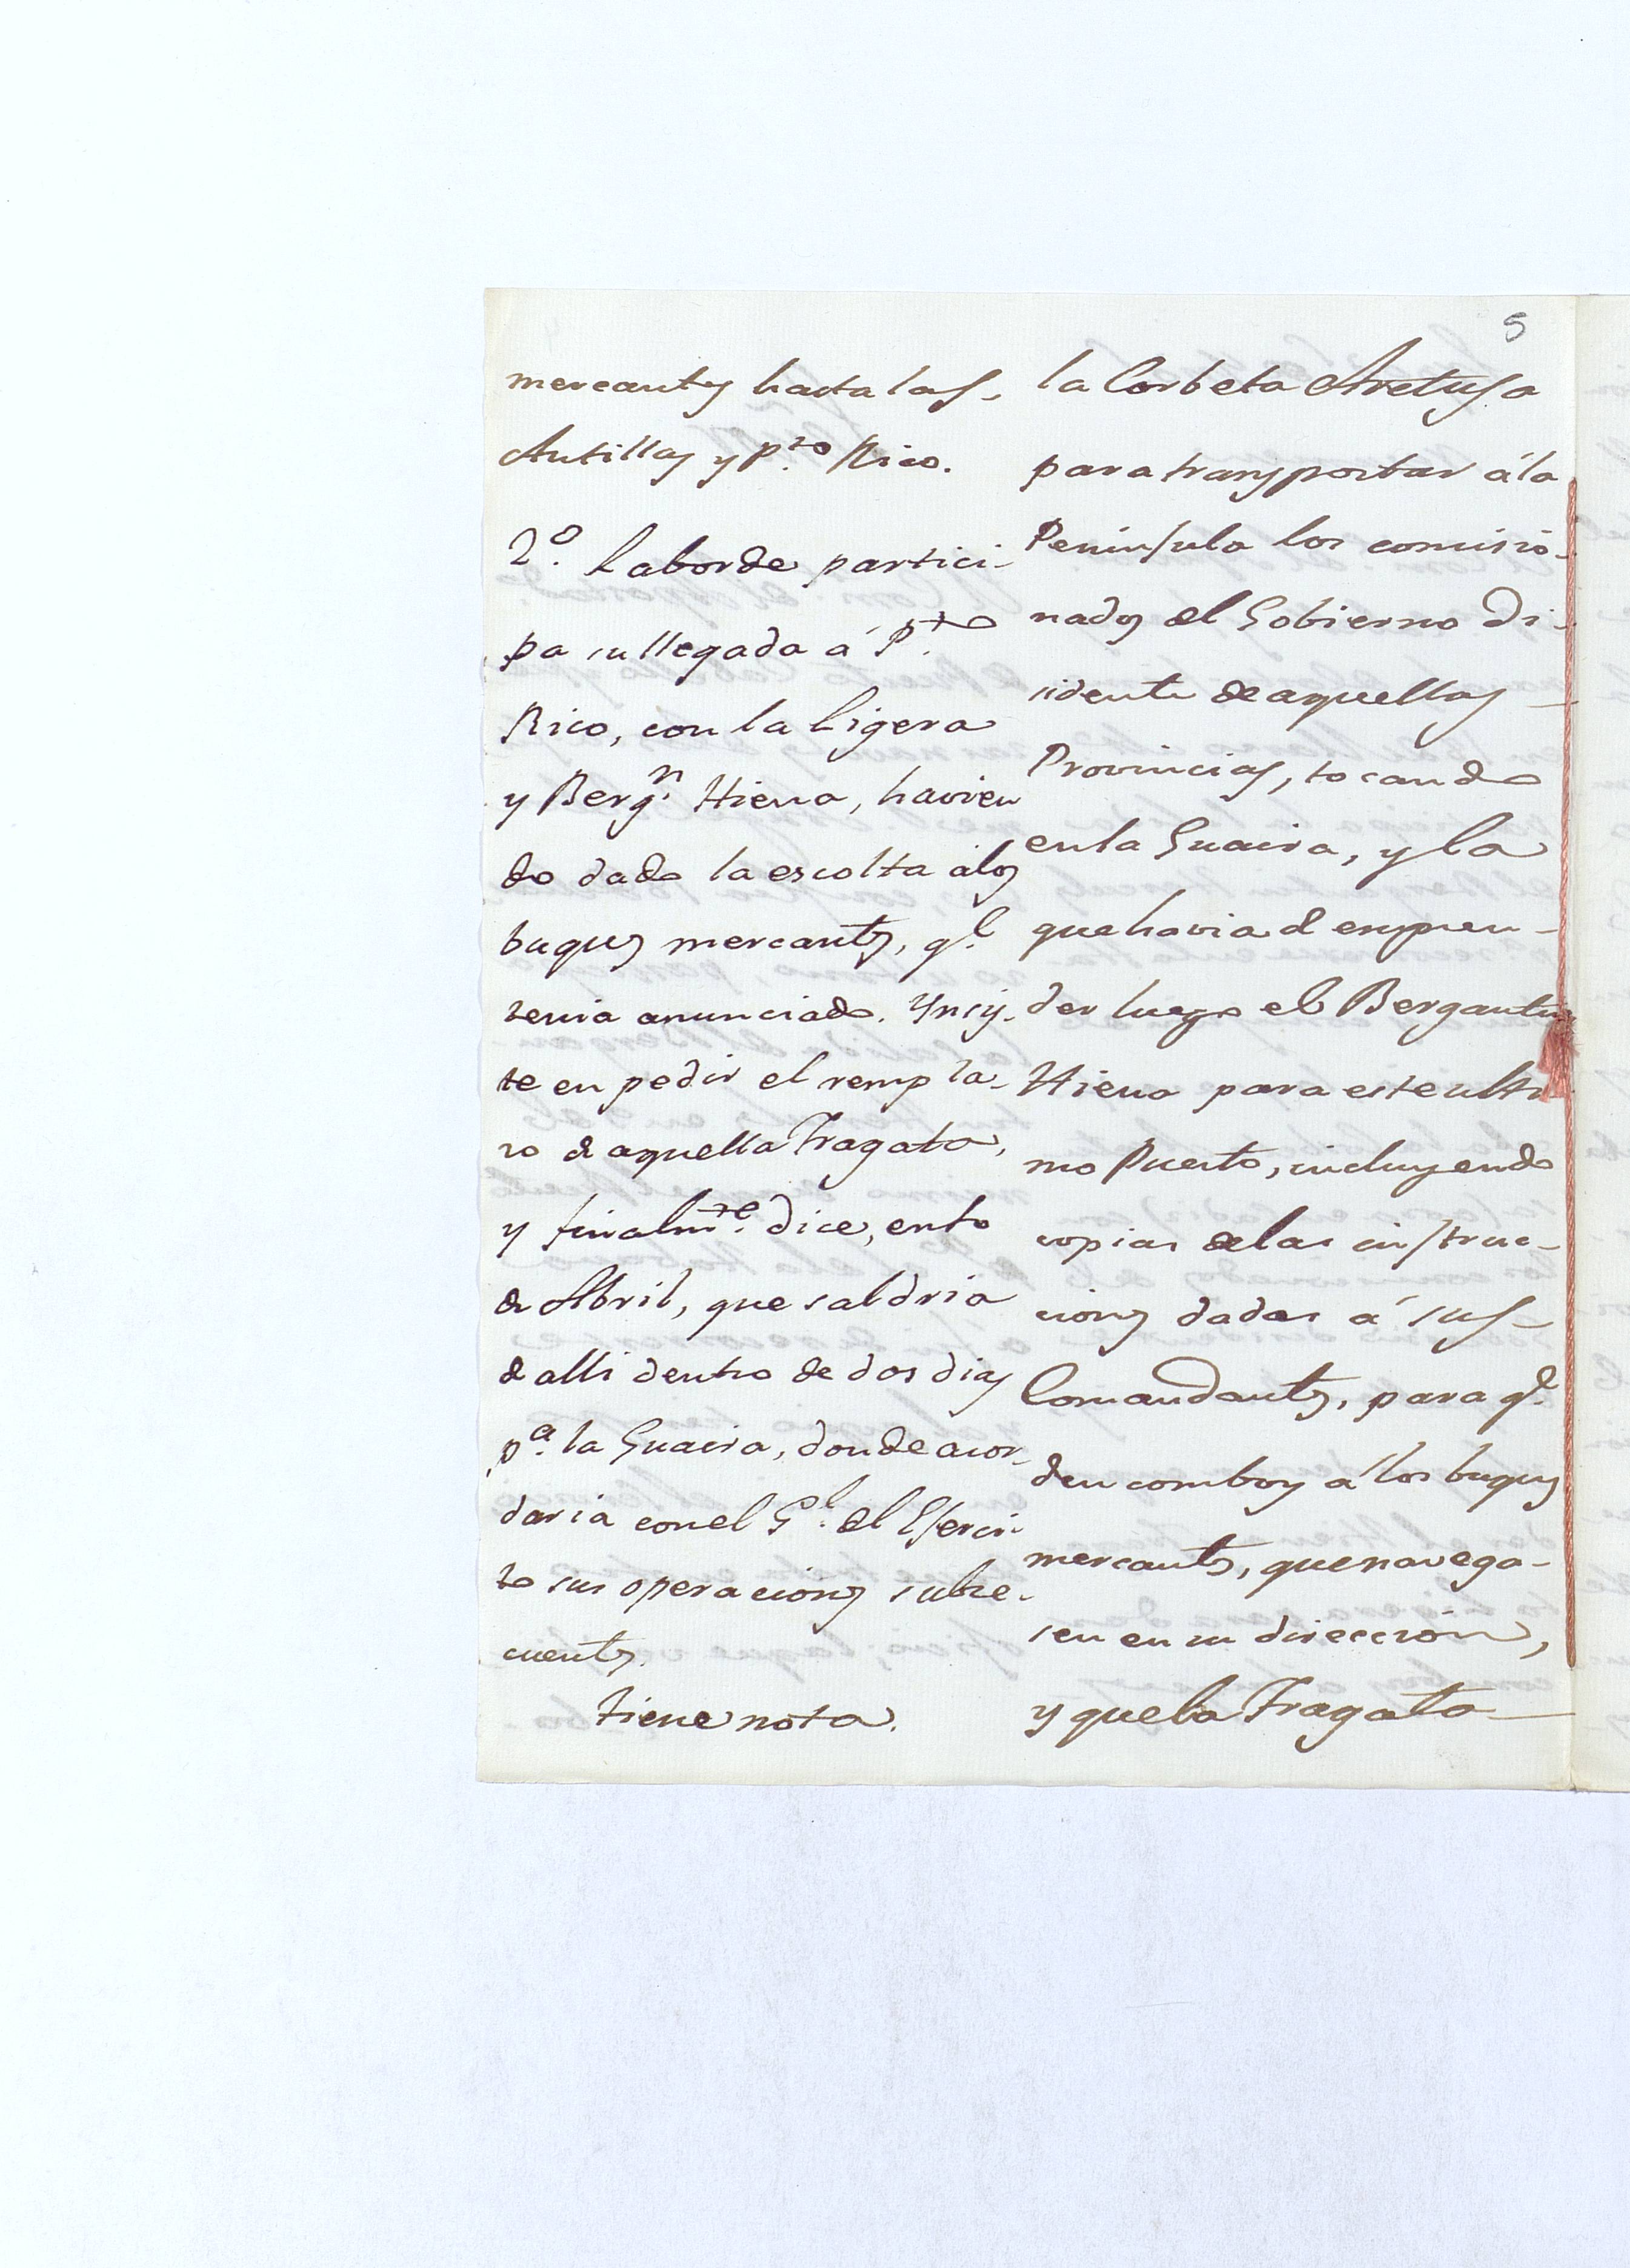 5
mercantes hasta las
Antillas y Pto. Rico.
2º. Laborde partici-
pa su llegada á Pto.
Rico, con la Ligera
y Bergn. Hiena, havien
do dado la escolta á los
buques mercantes, qe.
tenia anunciado. Ynsis-
te en pedir el rempla-
zo de aquella Fragata,
y finalmte. dice, en to
de Abril, que saldria
de alli dentro de dos dias
pa. la Guaira, donde acor-
daria con el Gl. del Ejerci-
to sus operaciones subse-
cuentes.
tiene nota.
la Corbeta Aretusa
para transportar á la
Peninsula los comisio-
nados del Gobierno di-
sidente de aquellas
Provincias, tocando
en la Guaira, y la
que havia de empren-
der luego el Bergantin
Hiena para este ulti
mo Puerto, incluyendo
copias de las instruc-
ciones dadas á sus
Comandantes, para qe.
den comboy á los buques
mercantes, que navega-
sen en su direccion,
y que la Fragata